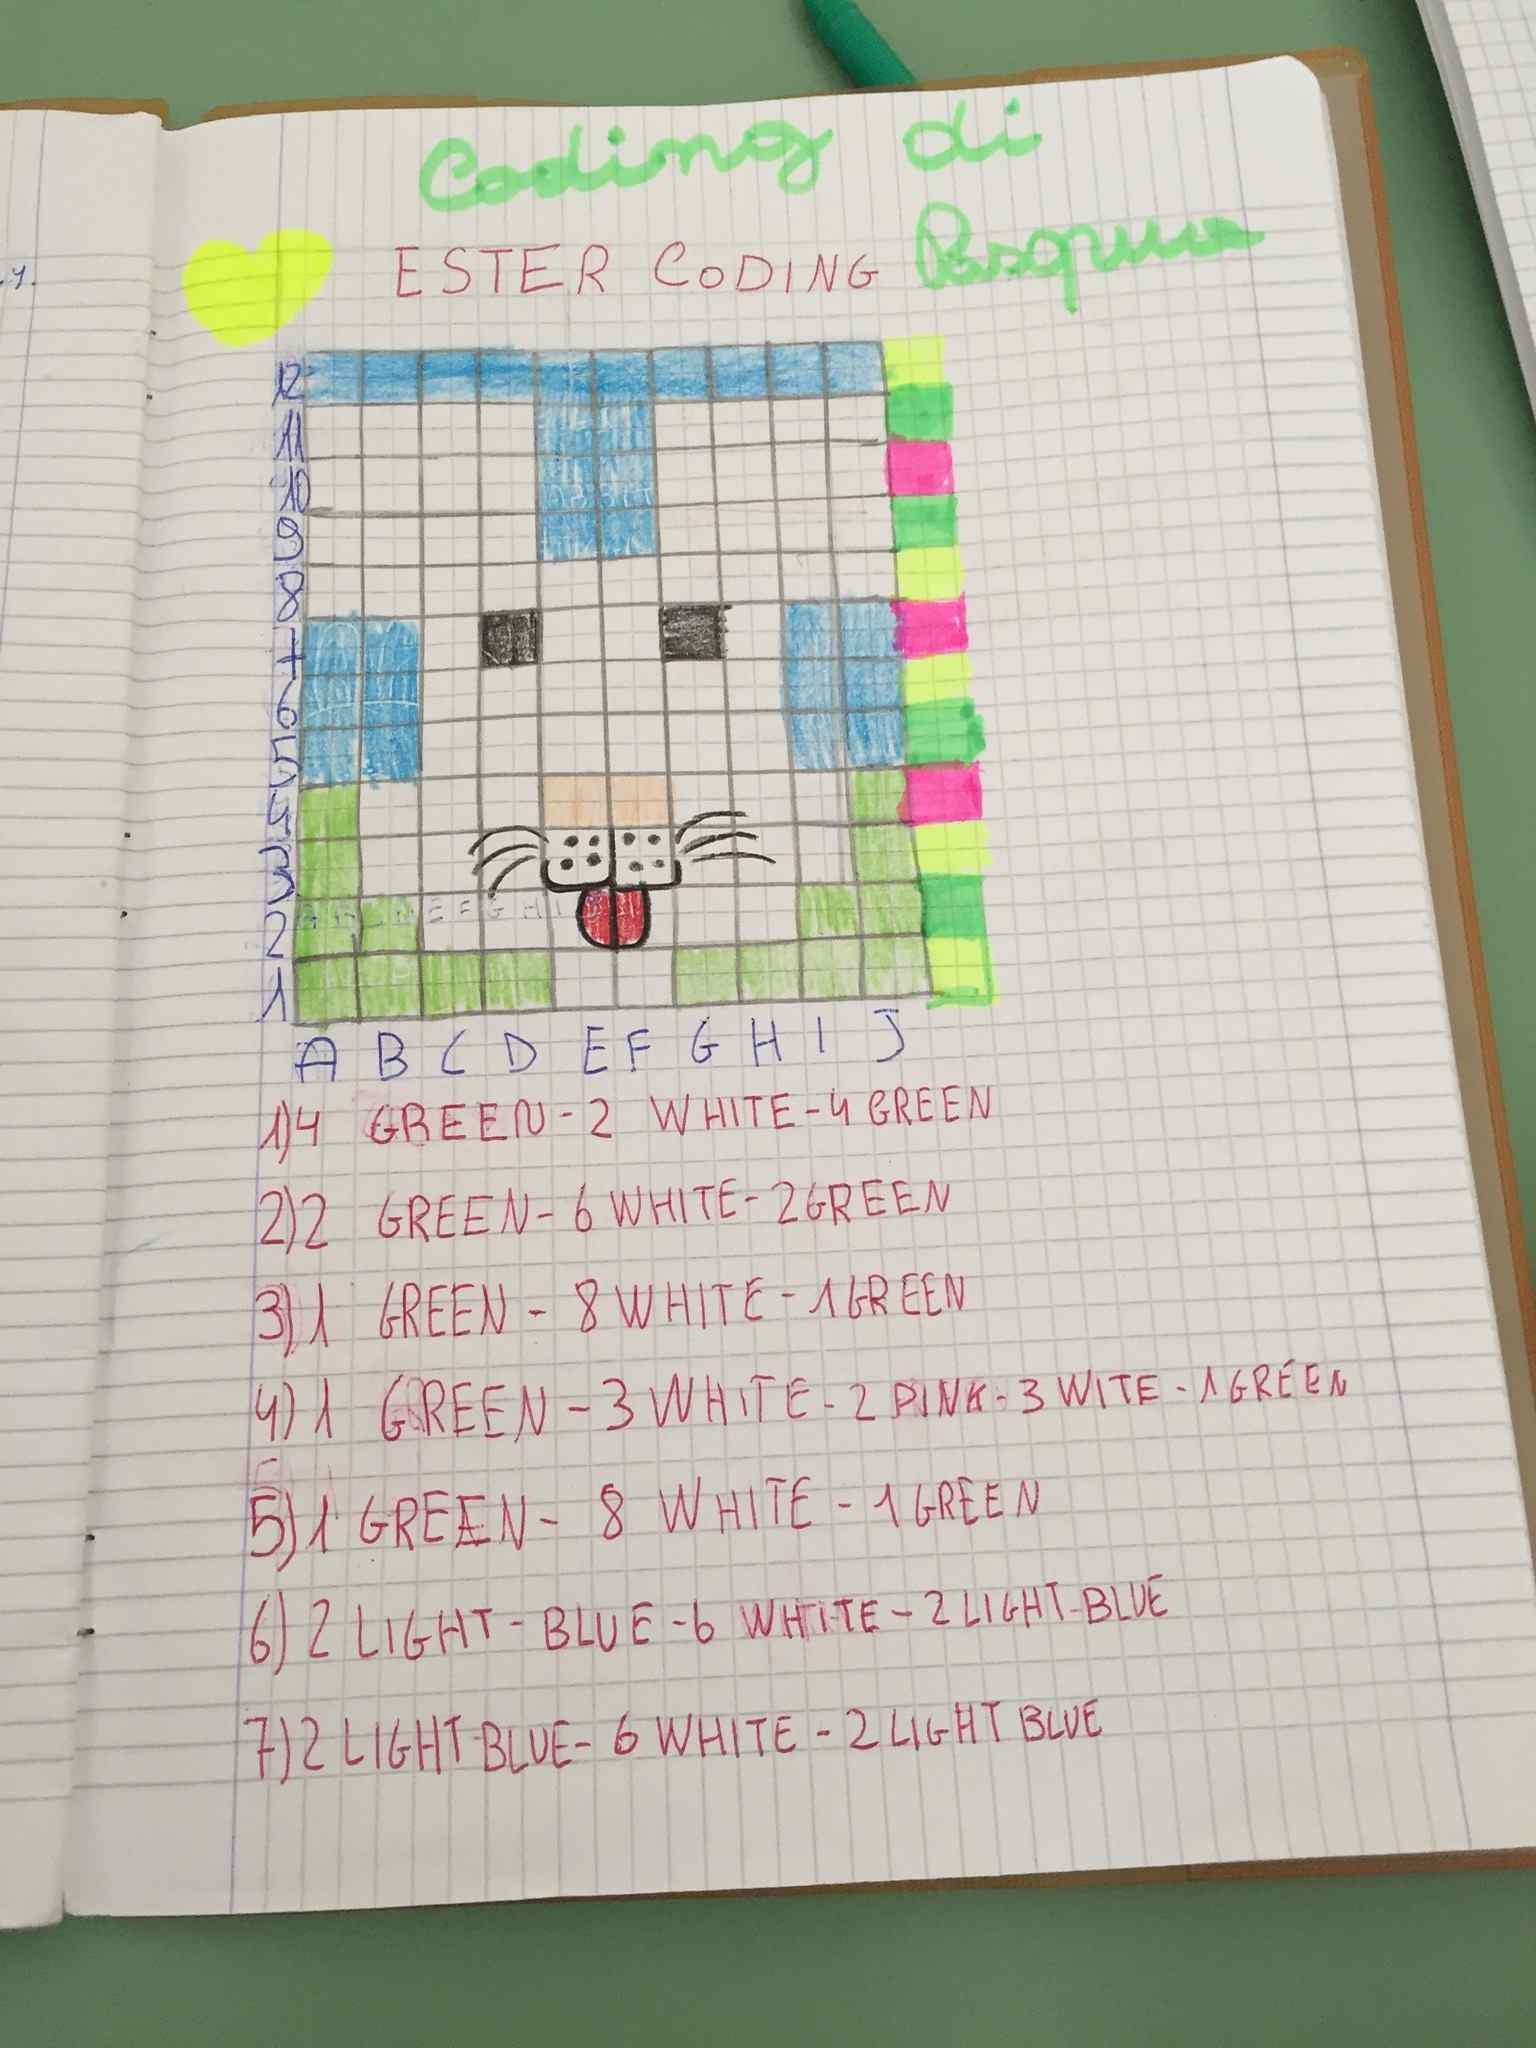 Coding di
Pasqua
ESTER CODING
12
11
10
9
8
7
6
5
5
3
2
1
A B C D E F G H I J
1)4 GREEN-2 WHITE-4 GREEN
2)2 GREEN-6 WHITE-2GREEN
3)1 GREEN-8 WHITE-1GREEN
4)1 GREEN-3 WHITE-2 PINK-3 WITE-1 GREEN
5)1 GREEN-8 WHITE-1 GREEN
6)2 LIGHT-BLUE-6 WHITE-2 LIGHT-BLUE
7)2 LIGHT-BLUE-6 WHITE-2 LIGHT BLUE